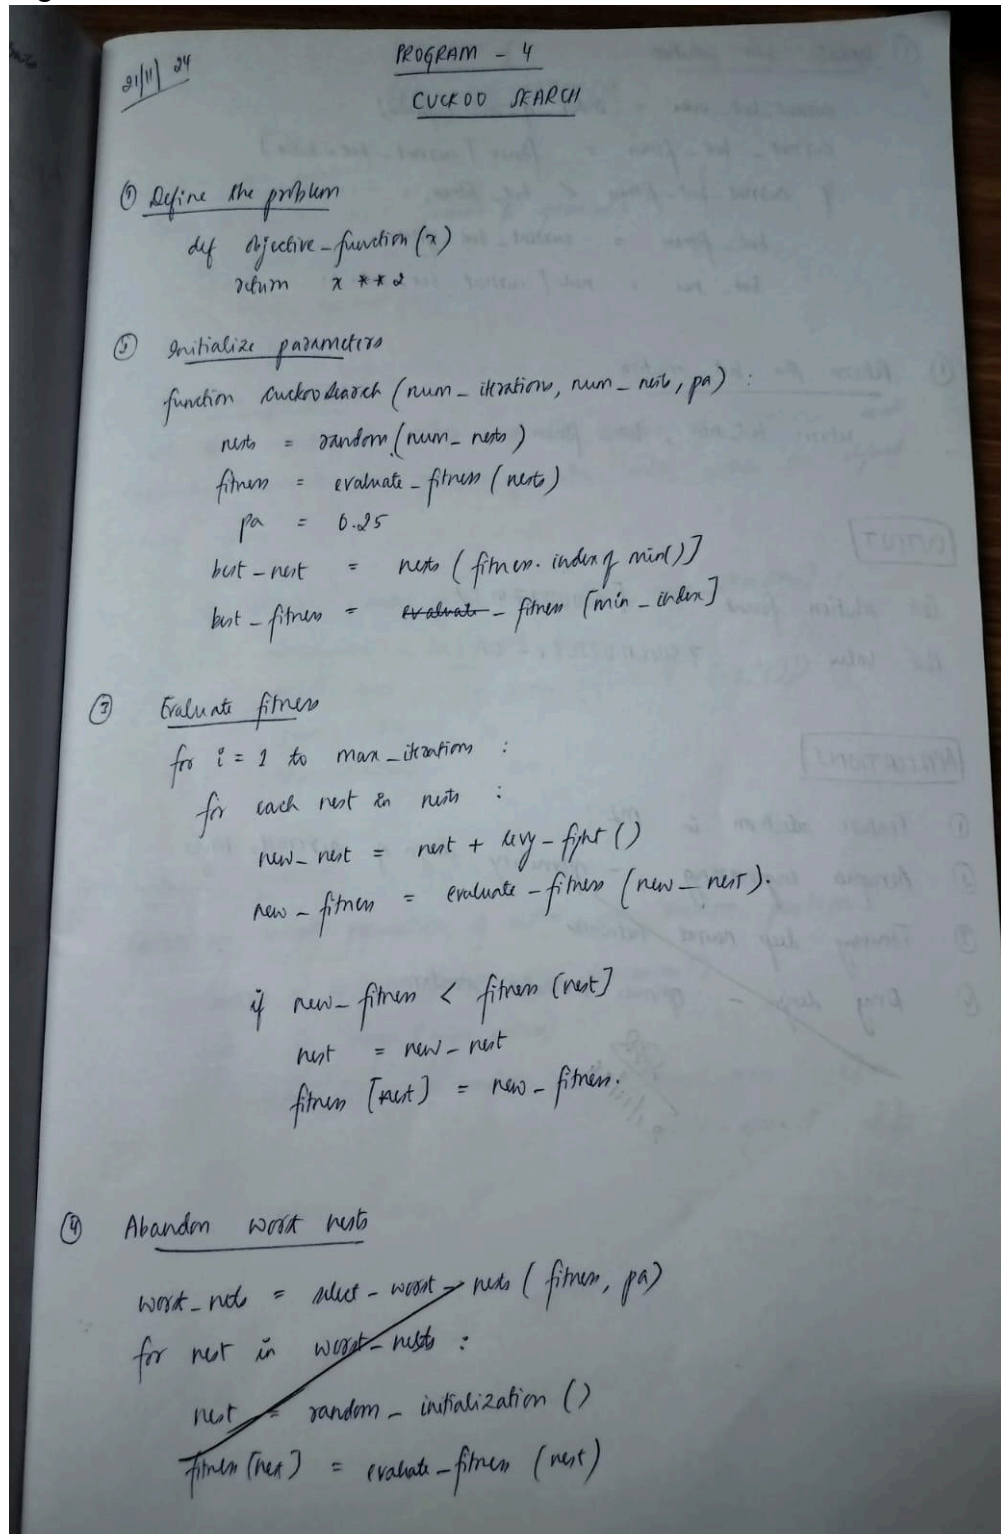 21/11/24
PROGRAM - 4
CUCKOO SEARCH
① Define the problem
def objective_function(x)
return x **2
② Initialize parameters
function cuckoosearch (num_iterations, num_nests, pa) :
nests = random(num_nests)
fitness = evaluate_fitness (nests)
pa = 0.25
best_nest = nests (fitness.indexof min()]
best_fitness = evaluate_fitness [min_index]
③ Evaluate fitness
for i = 1 to max_iterations :
for each nest in nests :
new_nest = nest + levy_fight ()
new_fitness = evaluate_fitness (new_nest).
if new_fitness < fitness (nest]
nest = new_nest
fitness [nest] = new_fitness.
④ Abandon worst nests
worst_nests = select_worst_nests (fitness, pa)
for nest in worst_nests :
nest = random_initialization ()
fitness (nest] = evaluate_fitness (nest)